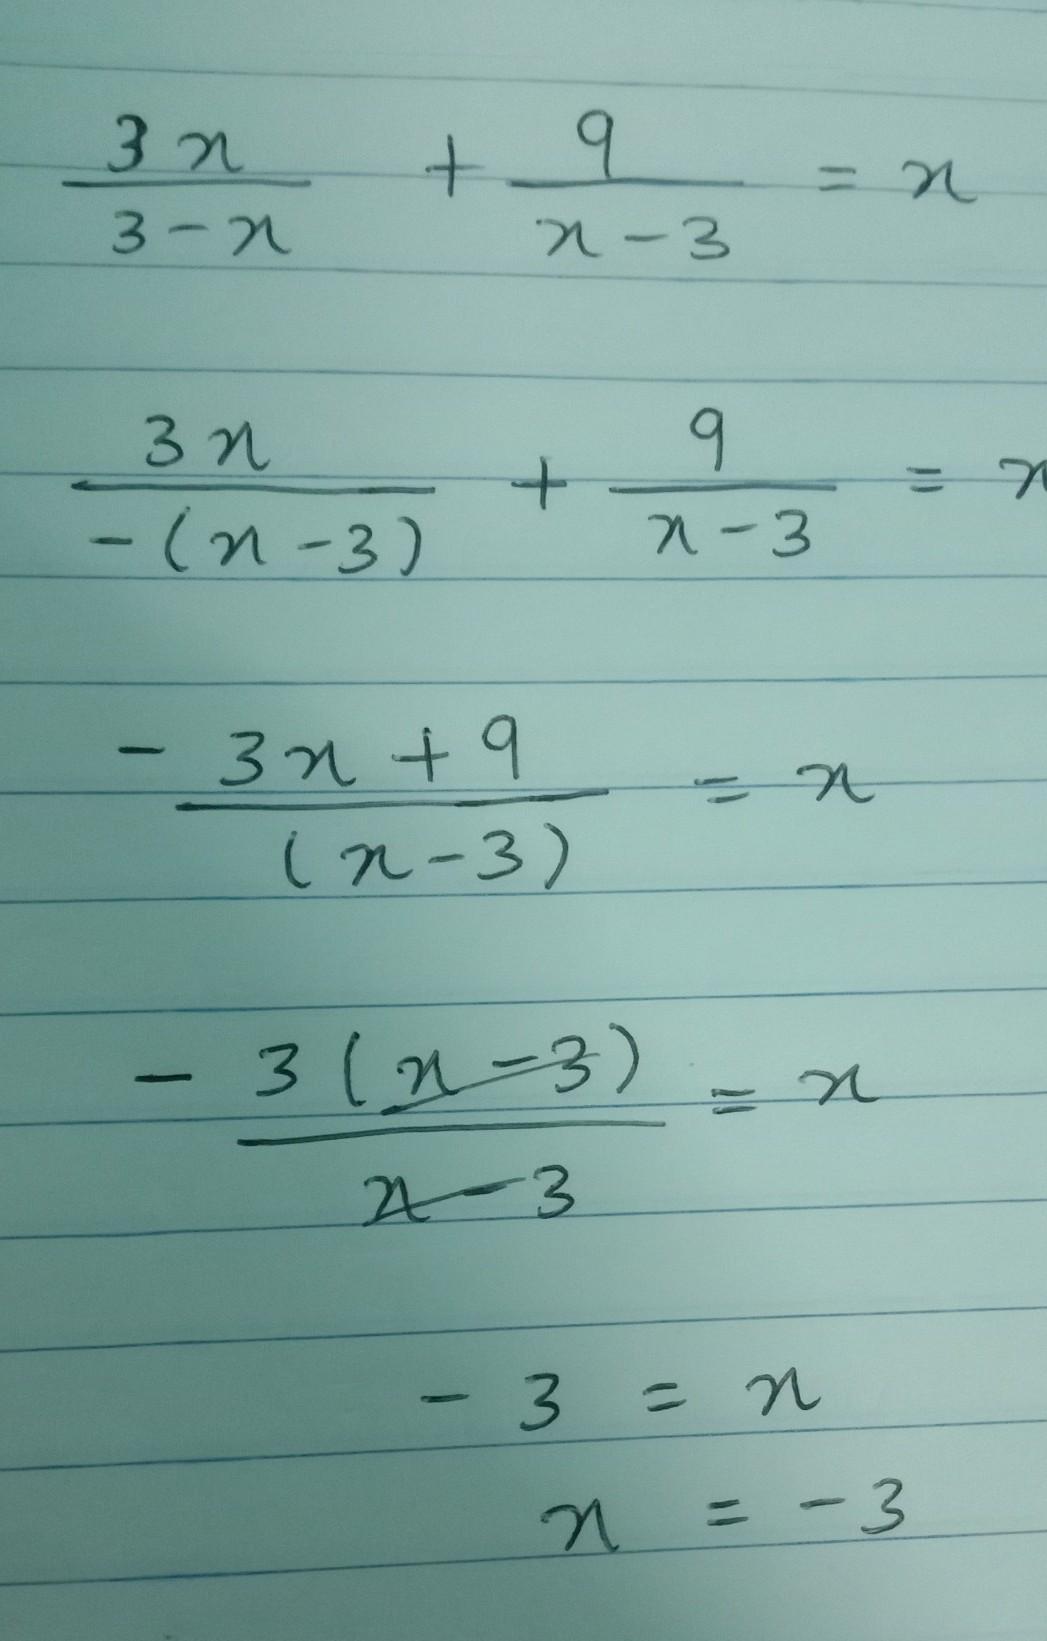 3x/(3-x) + 9/(x-3) = x
3x/(-(x-3)) + 9/(x-3) = x
(-3x+9)/(x-3) = x
-3(x-3)/(x-3) = x
-3 = x
x = -3